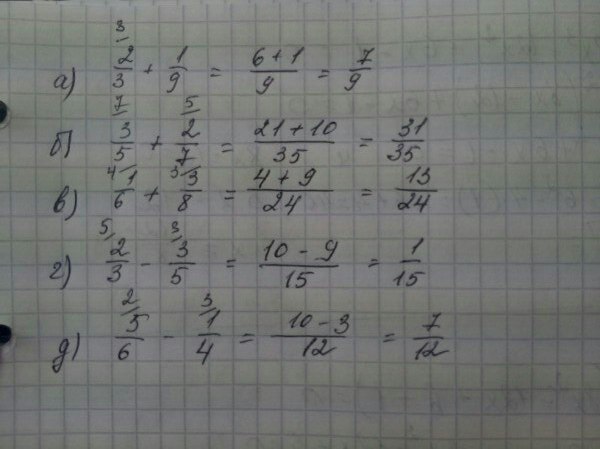 а) ³⁄ 2/3 + 1/9 = (6+1)/9 = 7/9
б) ⁷⁄ 3/5 + ⁵⁄ 2/7 = (21+10)/35 = 31/35
в) ⁴⁄ 1/6 + ³⁄ 3/8 = (4+9)/24 = 13/24
г) ⁵⁄ 2/3 - ³⁄ 3/5 = (10-9)/15 = 1/15
д) ²⁄ 5/6 - ³⁄ 1/4 = (10-3)/12 = 7/12